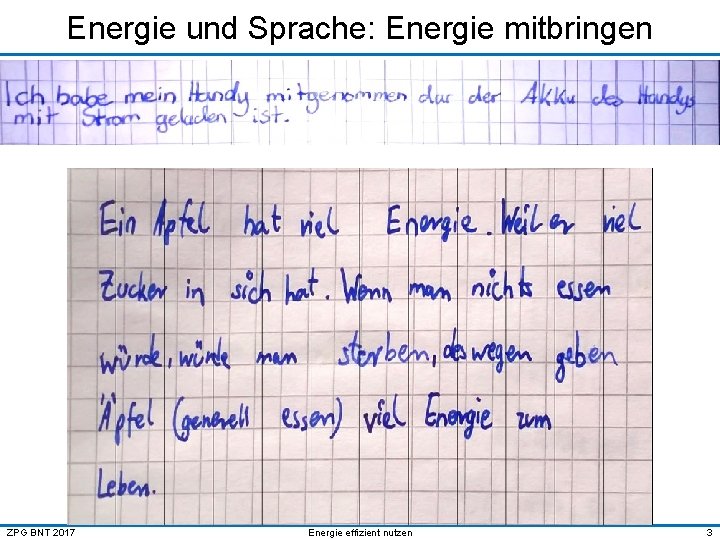 Energie und Sprache: Energie mitbringen
Ich habe mein Handy mitgenommen der Akku des Handys
mit Strom geladen ist.
Ein Apfel hat viel Energie. Weil er viel
Zucker in sich hat. Wenn man nichts essen
würde, würde man sterben, deswegen geben
Äpfel (generell essen) viel Energie zum
Leben.
ZPG BNT 2017 Energie effizient nutzen 3